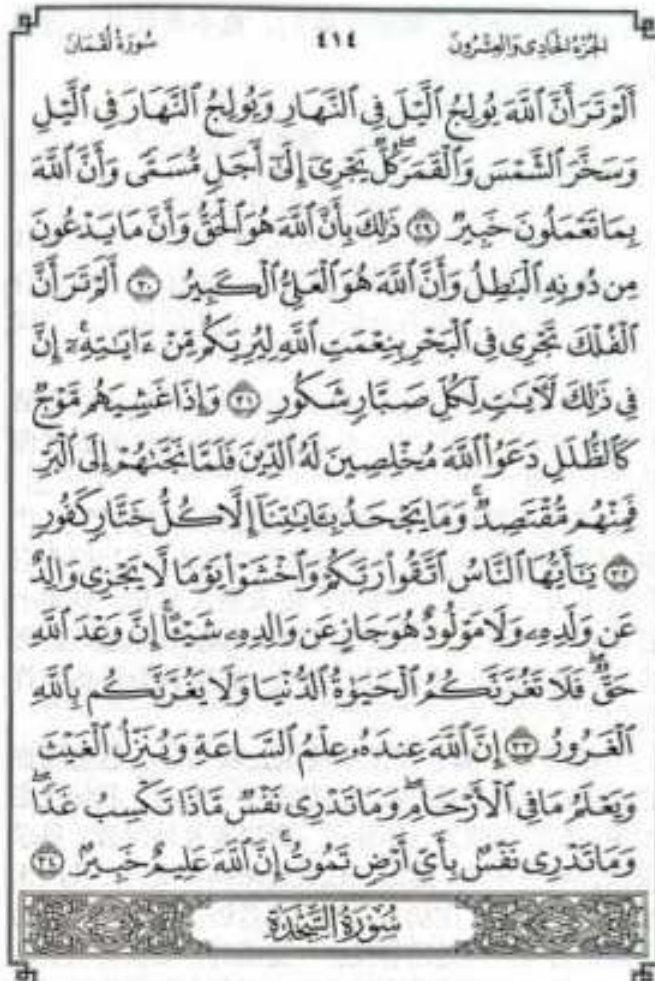 الجزء الحادي والعشرون ٤١٤ سورة لقمان
أَلَمْ تَرَ أَنَّ ٱللَّهَ يُولِجُ ٱلَّيْلَ فِى ٱلنَّهَارِ وَيُولِجُ ٱلنَّهَارَ فِى ٱلَّيْلِ
وَسَخَّرَ ٱلشَّمْسَ وَٱلْقَمَرَۖ كُلٌّ يَجْرِىٓ إِلَىٰٓ أَجَلٍ مُّسَمًّى وَأَنَّ ٱللَّهَ
بِمَا تَعْمَلُونَ خَبِيرٌ ٢٩ ذَٰلِكَ بِأَنَّ ٱللَّهَ هُوَ ٱلْحَقُّ وَأَنَّ مَا يَدْعُونَ
مِن دُونِهِ ٱلْبَٰطِلُ وَأَنَّ ٱللَّهَ هُوَ ٱلْعَلِىُّ ٱلْكَبِيرُ ٣٠ أَلَمْ تَرَ أَنَّ
ٱلْفُلْكَ تَجْرِى فِى ٱلْبَحْرِ بِنِعْمَتِ ٱللَّهِ لِيُرِيَكُم مِّنْ ءَايَٰتِهِۦٓۚ إِنَّ
فِى ذَٰلِكَ لَءَايَٰتٍ لِّكُلِّ صَبَّارٍ شَكُورٍ ٣١ وَإِذَا غَشِيَهُم مَّوْجٌ
كَٱلظُّلَلِ دَعَوُا۟ ٱللَّهَ مُخْلِصِينَ لَهُ ٱلدِّينَ فَلَمَّا نَجَّىٰهُمْ إِلَى ٱلْبَرِّ
فَمِنْهُم مُّقْتَصِدٌۚ وَمَا يَجْحَدُ بِـَٔايَٰتِنَآ إِلَّا كُلُّ خَتَّارٍ كَفُورٍ
٣٢ يَٰٓأَيُّهَا ٱلنَّاسُ ٱتَّقُوا۟ رَبَّكُمْ وَٱخْشَوْا۟ يَوْمًا لَّا يَجْزِى وَالِدٌ
عَن وَلَدِهِۦ وَلَا مَوْلُودٌ هُوَ جَازٍ عَن وَالِدِهِۦ شَيْـًٔاۚ إِنَّ وَعْدَ ٱللَّهِ
حَقٌّۖ فَلَا تَغُرَّنَّكُمُ ٱلْحَيَوٰةُ ٱلدُّنْيَا وَلَا يَغُرَّنَّكُم بِٱللَّهِ
ٱلْغَرُورُ ٣٣ إِنَّ ٱللَّهَ عِندَهُۥ عِلْمُ ٱلسَّاعَةِ وَيُنَزِّلُ ٱلْغَيْثَ
وَيَعْلَمُ مَا فِى ٱلْأَرْحَامِۖ وَمَا تَدْرِى نَفْسٌ مَّاذَا تَكْسِبُ غَدًاۖ
وَمَا تَدْرِى نَفْسٌۢ بِأَىِّ أَرْضٍ تَمُوتُۚ إِنَّ ٱللَّهَ عَلِيمٌ خَبِيرٌۢ ٣٤
سُورَةُ السَّجْدَةِ